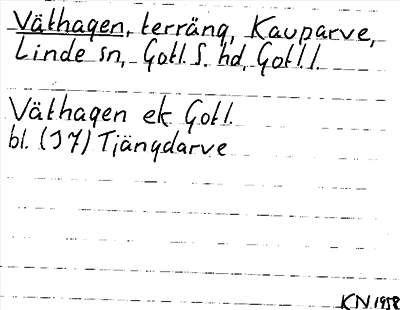 Väthagen, terräng, Kauparve,
Linde sn, Gotl. S. hd, Gotl l.
Väthagen ek Gotl.
bl. (J 7) Tjängdarve
KN 1958